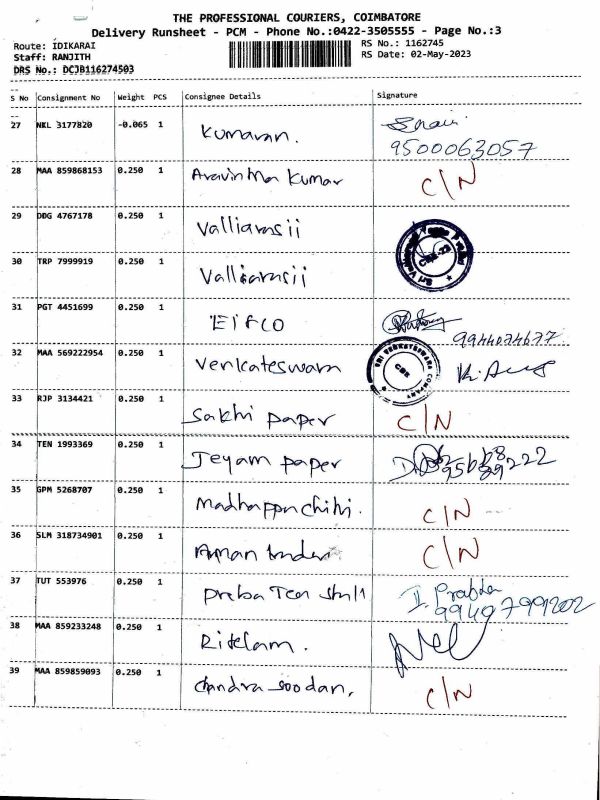 THE PROFESSIONAL COURIERS, COIMBATORE
Delivery Runsheet - PCM - Phone No.:0422-3505555 - Page No.:3
Route: IDIKARAI
RS No.: 1162745
Staff: RANJITH
RS Date: 02-May-2023
DRS No.: DCJB116274503
S No Consignment No Weight PCS Consignee Details Signature
27 NKL 3177820 -0.065 1 Kumaran.
9500063057
28 MAA 859868153 0.250 1 Aravintha Kumar C/N
29 DDG 4767178 0.250 1 Valliarasii
30 TRP 7999919 0.250 1 Valliarasii
31 PGT 4451699 0.250 1 EIFCO
9944074677
32 MAA 569222954 0.250 1 Venkateswara
SRI VENKATESWARA COMPANY
CBE
33 RJP 3134421 0.250 1 Sakhi paper C/N
34 TEN 1993369 0.250 1 Jeyam paper
35 GPM 5268707 0.250 1 C/N
36 SLM 318734901 0.250 1 C/N
37 TUT 553976 0.250 1 Preba Tea Stall I. Prabha
38 MAA 859233248 0.250 1
39 MAA 859859093 0.250 1 Chandra Soodan, C/N